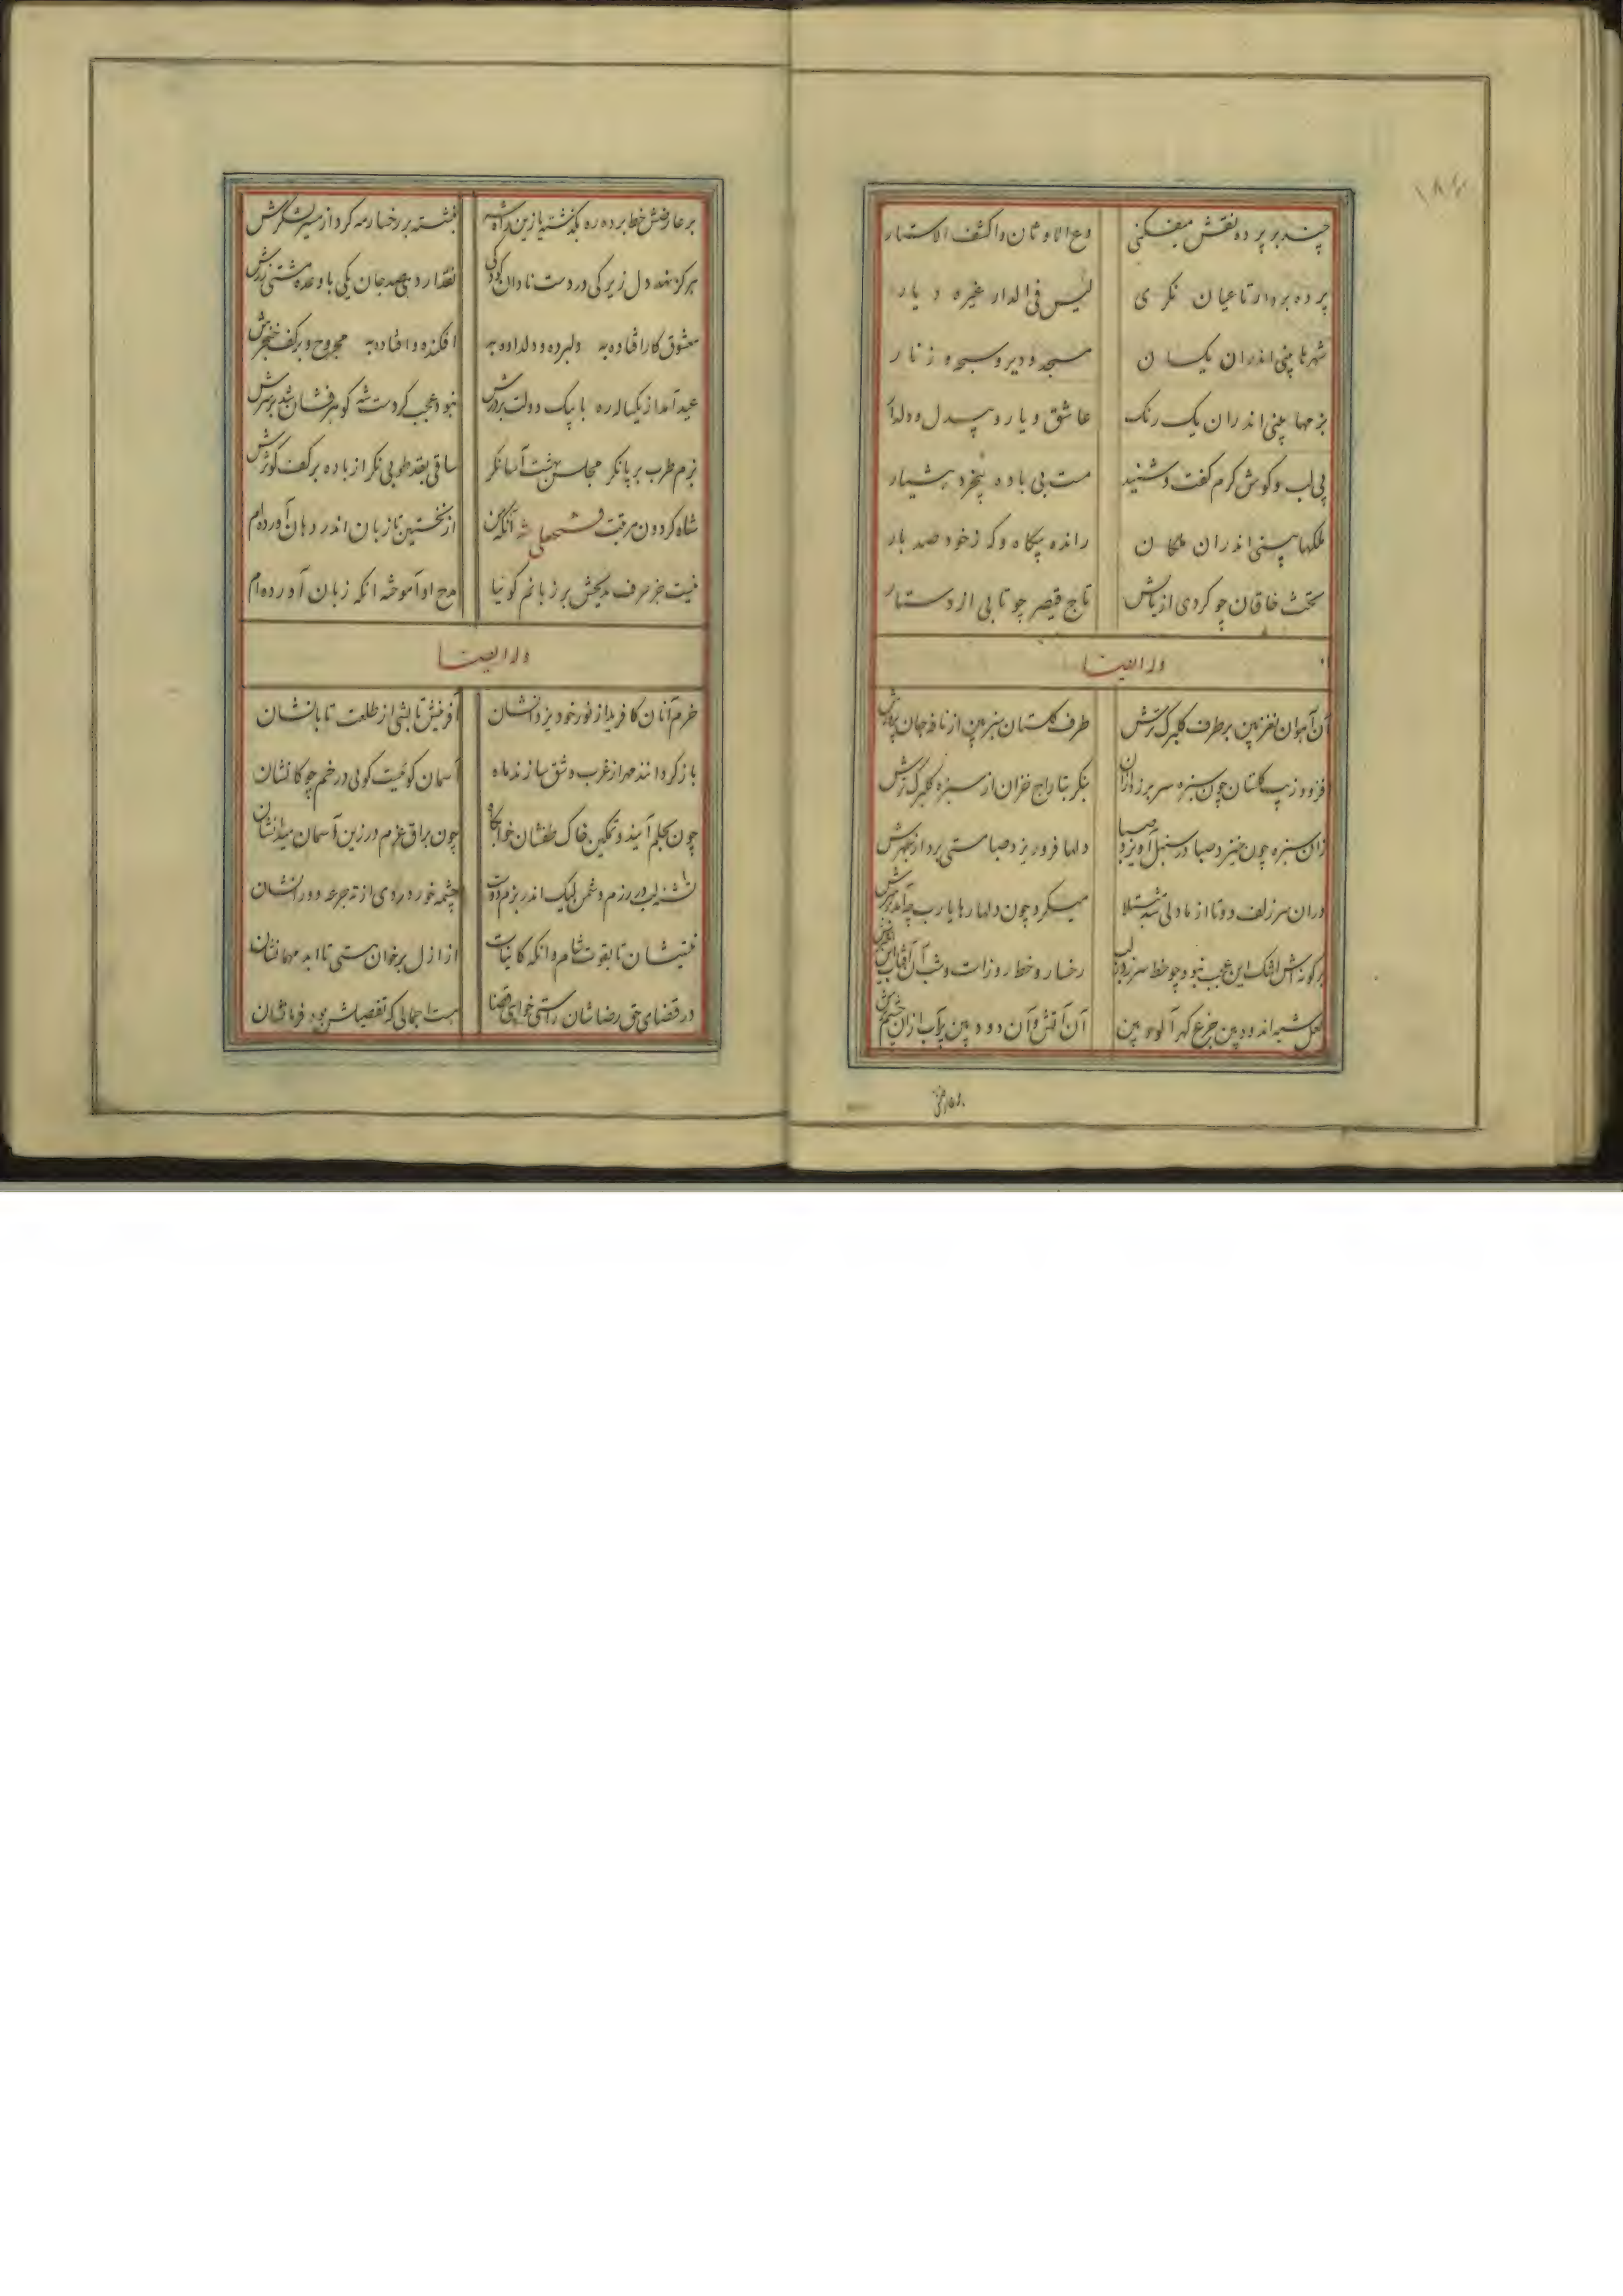 ۱۸۶
چند بر پرده نقش میفکنی دع الاوثان واکشف الاستار
پرده بردار تا عیان نکری لیس فی الدار غیره دیار
شهرها بینی اندران یکسان مسجد و دیر و سبحه و زنار
بزمها بینی اندران یک رنک عاشق و یار و بیدل و دلدار
بی لب و کوش کرم کفت و شنید مست بی باده بیخرد هشیار
ملکها بینی اندران ملکان رانده بیکاه و که ز خود صد بار
تخت خاقان چو کردی از بالش تاج قیصر چو تابی از دستار
وله ایضا
آن آهوان نغز بین بر طرف کلبرک ترش طرف کلستان سبز بین از نافه جان پرورش
فزود زیب کلستان چون سبزه سر برزد ازان بنکر بتاراج خزان از سبزه کلبرک ترش
زان سبزه چون خیزد صبا در سنبل آویزد صبا دلها فرو ریزد صبا مستی برد از عبهرش
دران سر زلف دوتا از ما دلی شد مبتلا میکرد چون دلها رها یارب چه آمد بر سرش
بر کونه اش اشک این عجب نبود چو خط سر زد ز لب رخسار و خط روزست و شب آن آفتاب این اخترش
لعل شبه اندود بین جزع کهر آلود بین آن آتش و آن دود بین پرآب ازان چشم ترش
بر عارضش خط برده ره بکذشته یا زین دادشه نبشته بر رخسار مه کرد از مسیر لشکرش
هرکز نهد دل زیرکی در دست نادان کودکی نقد ار دهی صد جان یکی با وعده مشتی زرش
معشوق کار افتاده به دلبرده و دلداده به افکنده و افتاده به مجروح و بر کف خنجرش
عید آمد از یکساله ره با پیک دولت بر درش نبود عجب کر دست شه کوهر فشان شد بر سرش
بزم طرب بر پا نکر مجلس بهشت آسا نکر ساقی بقد طوبی نکر از باده بر کف کوثرش
شاه کردون مرتبت فتحعلی شه آنکه من از نخستین تا زبان اندر دهان آورده ام
نیست جز حرف مدیحش بر زبانم کوئیا مدح او آموخته انکه زبان آورده ام
وله ایضا
خرم آنان کافرید از نور خود یزدانشان آفرینش تابشی از طلعت تابانشان
باز کردانند مهر از غرب و شق سازند ماه آسمان کوئیست کوئی در خم چوکانشان
چون بحلم آیند و تمکین خاک طفشان خوابکاه چون براق عزم در زین آسمان میدانشان
تشنه لب در رزم دشمن لیک اندر بزم دوست چشمه خور دردی از ته جرعه دورانشان
نیستشان تا بقوت شام و انکه کاینات از ازل بر خوان هستی تا ابد مهمانشان
در قضای حق رضاشان راستی خواهی قضا هست اجمالی که تفصیلش بود فرمانشان